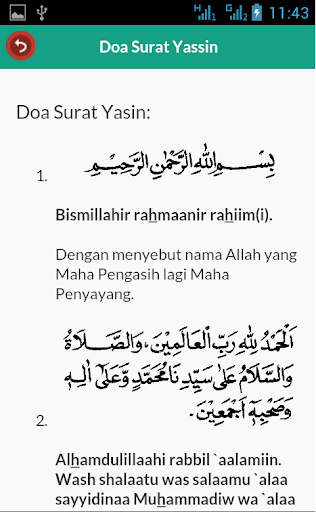 H G 11:43
Doa Surat Yassin
Doa Surat Yasin:
1. بِسْمِ اللهِ الرَّحْمٰنِ الرَّحِيْمِ
Bismillahir rahmaanir rahiim(i).
Dengan menyebut nama Allah yang
Maha Pengasih lagi Maha
Penyayang.
اَلْحَمْدُ لِلّٰهِ رَبِّ الْعَالَمِيْنَ، وَالصَّلَاةُ
وَالسَّلَامُ عَلٰى سَيِّدِنَا مُحَمَّدٍ وَّعَلٰى اٰلِهٖ
2. وَصَحْبِهٖٓ اَجْمَعِيْنَ.
Alhamdulillaahi rabbil `aalamiin.
Wash shalaatu was salaamu `alaa
sayyidinaa Muhammadiw wa `alaa